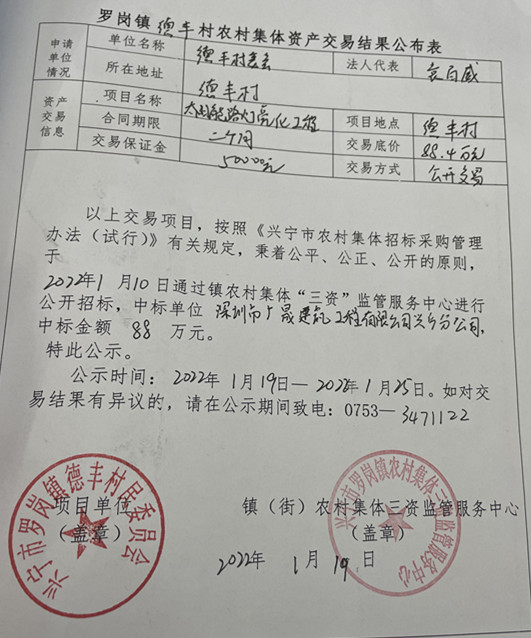 罗岗镇德丰村农村集体资产交易结果公布表
申请单位情况 单位名称 德丰村委会 法人代表 袁百威
所在地址 德丰村
资产交易信息 项目名称 太阳能路灯亮化工程 项目地点 德丰村
合同期限 二个月 交易底价 88.4万元
交易保证金 50000元 交易方式 公开交易
以上交易项目，按照《兴宁市农村集体招标采购管理
办法（试行）》有关规定，秉着公平、公正、公开的原则，
于
2022年1月10日通过镇农村集体“三资”监管服务中心进行
公开招标，中标单位 深圳市广晟建筑工程有限公司兴宁分公司，
中标金额 88 万元。
特此公示。
公示时间：2022年1月19日—2022年1月25日。如对交
易结果有异议的，请在公示期间致电：0753—3471122
项目单位 镇（街）农村集体三资监管服务中心
（盖章） （盖章）
2022年1月19日
兴宁市罗岗镇德丰村居委员会
兴宁市罗岗镇农村集体三资监管服务中心